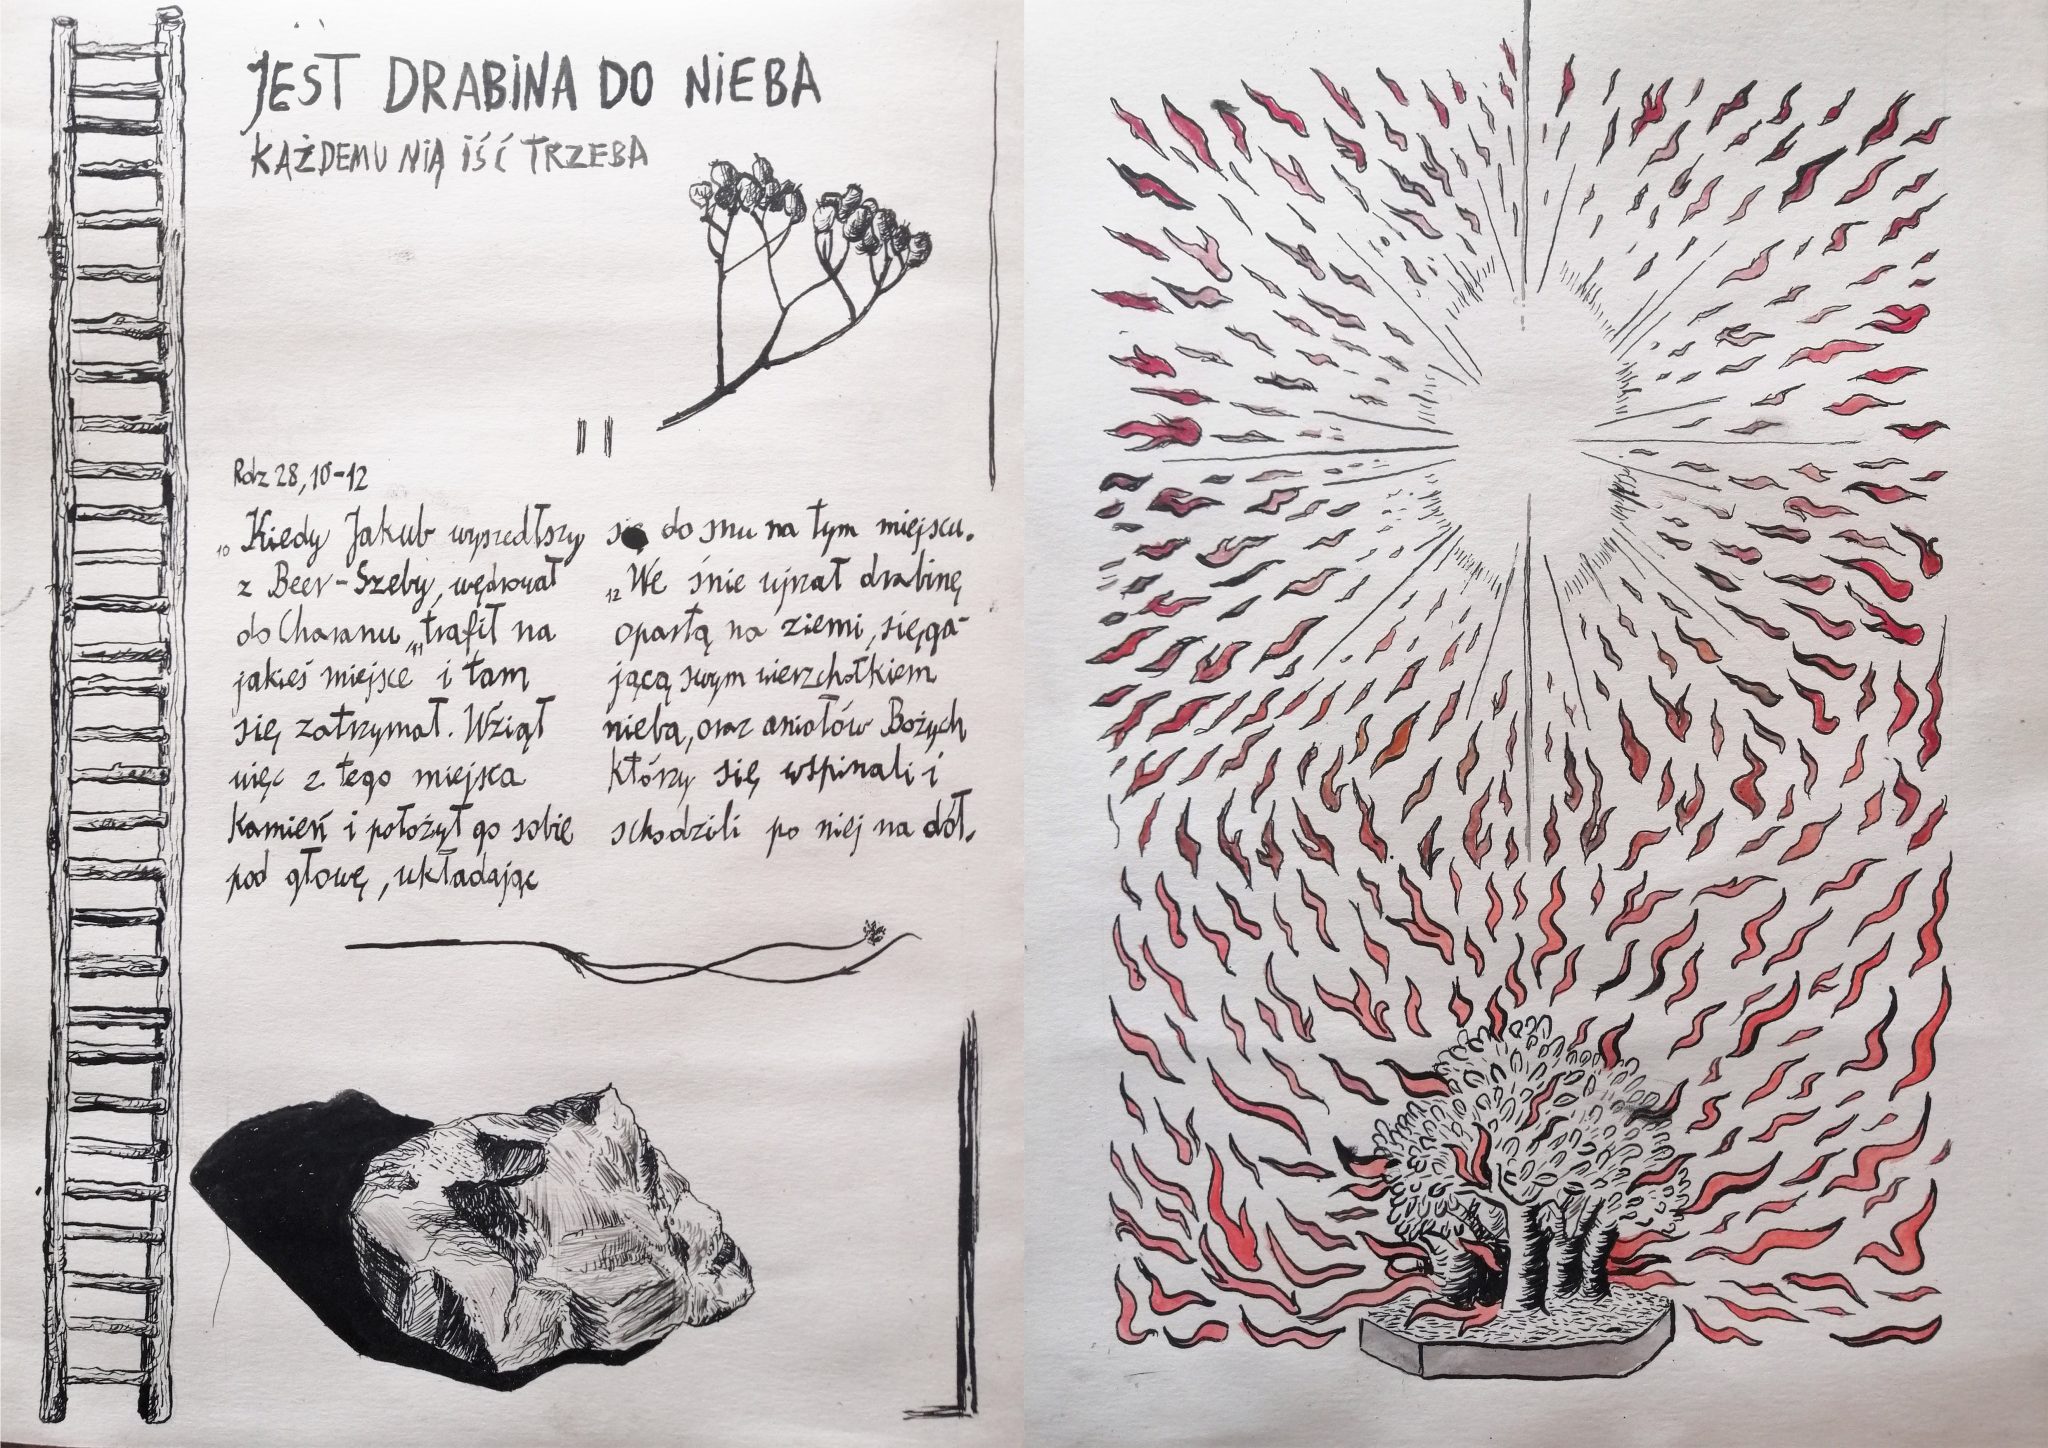 JEST DRABINA DO NIEBA
KAŻDEMU NIĄ IŚĆ TRZEBA
Rdz 28, 10-12
10 Kiedy Jakub wyszedłszy
z Beer-Szeby, wędrował
do Charanu, 11 trafił na
jakieś miejsce i tam
się zatrzymał. Wziął
więc z tego miejsca
kamień i położył go sobie
pod głowę, układając
się do snu na tym miejscu.
12 We śnie ujrzał drabinę
opartą na ziemi, sięga-
jącą swym wierzchołkiem
nieba, oraz aniołów Bożych
którzy się wspinali i
schodzili po niej na dół.